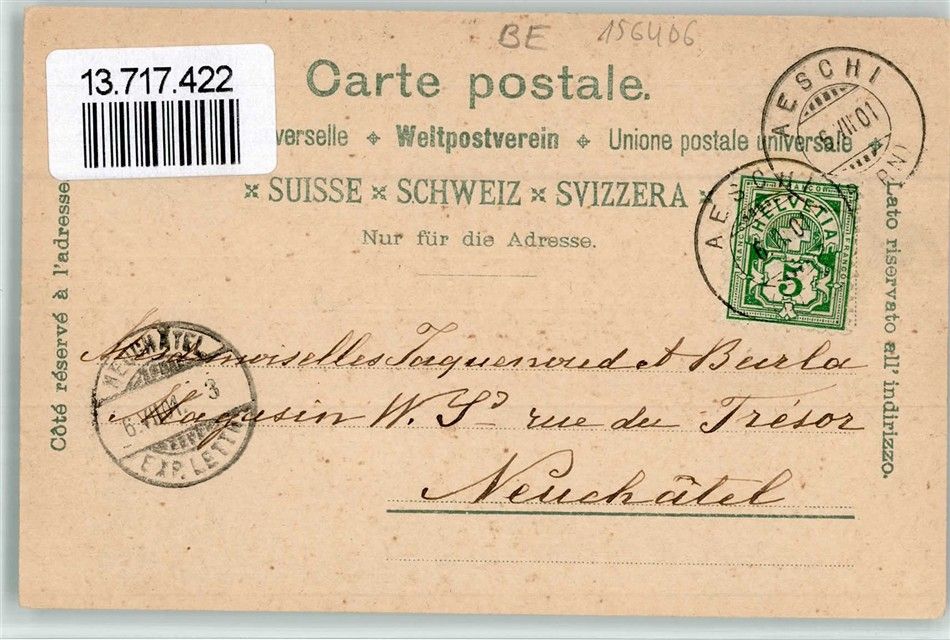 BE 156406
13.717.422
Carte postale.
verselle Weltpostverein Unione postale universale
SUISSE SCHWEIZ SVIZZERA
Nur für die Adresse.
Côté réservé à l'adresse
Lato riservato all' indirizzo.
AESCHI
AESCHI
HELVETIA
FRANCO
5
NEUCHATEL
6.VII.01 3
EXP. LETTR
Mesdemoiselles Jaquenoud et Beurla
Magasin W. Sd rue du Trésor
Neuchâtel